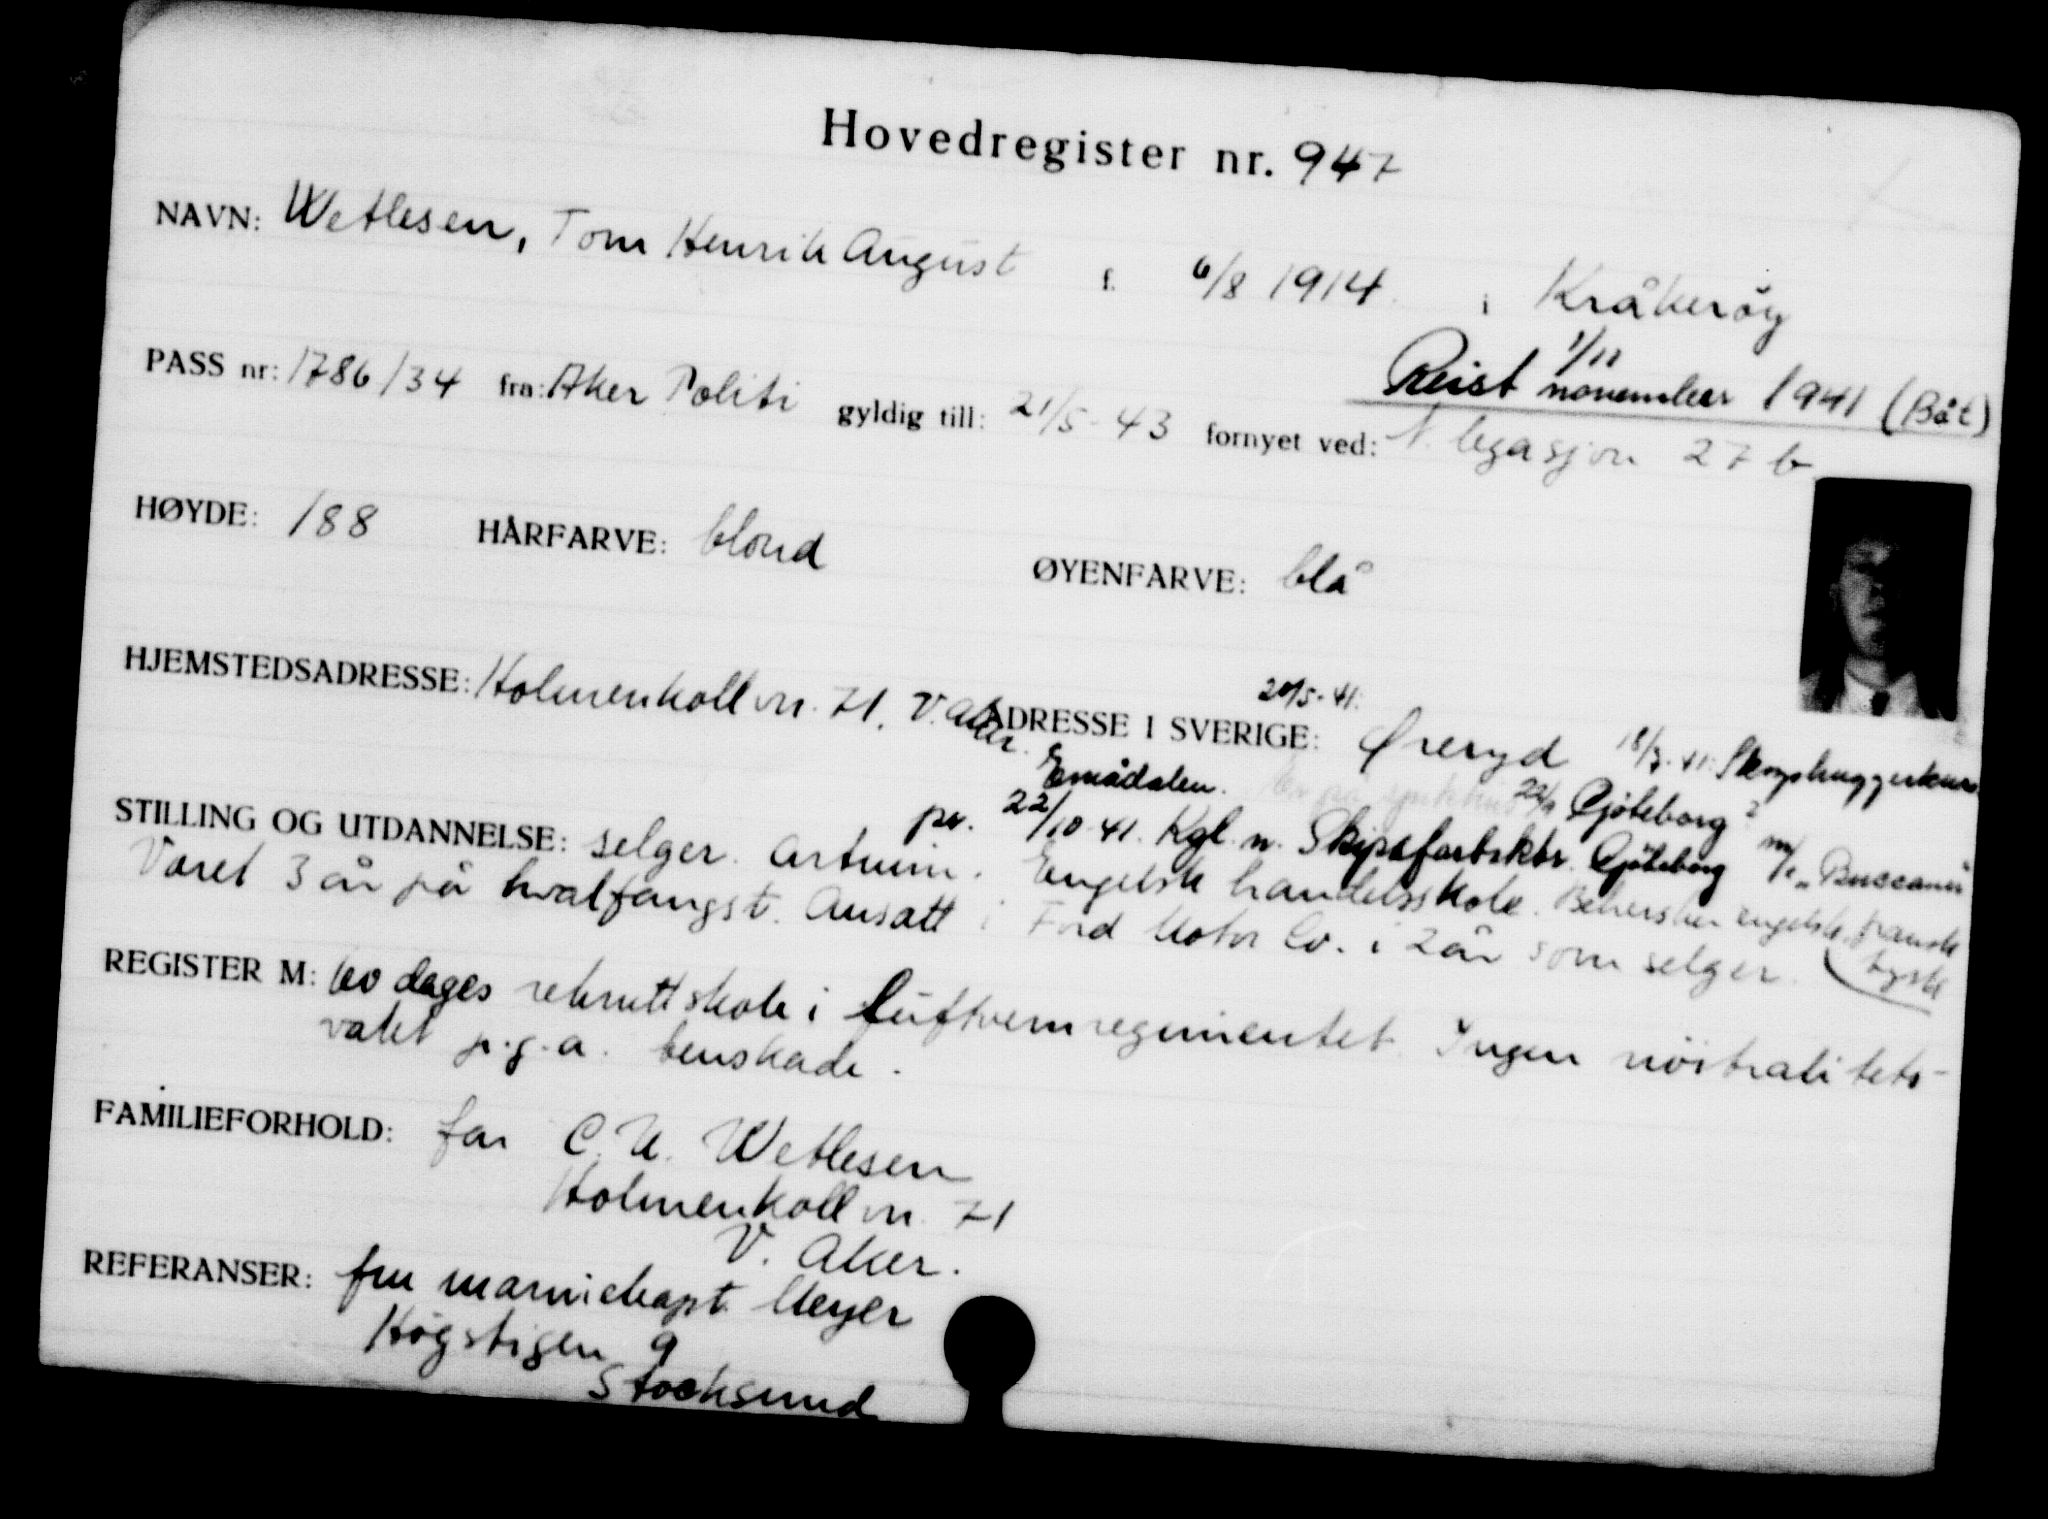 Hovedregister nr. 947
NAVN: Wetlesen, Tom Henrik August f. 6/8 1914 i Kråkerøy
Reist 1/11 november 1941 (Båt)
PASS nr: 1786/34 fra: Aker Politi gyldig till: 21/5-43 fornyet ved: N. legasjon 27 b
HØYDE: 188 HÅRFARVE: blond ØYENFARVE: blå
HJEMSTEDSADRESSE: Holmenkollvn. 71. V. Aker. ADRESSE I SVERIGE: 20/5-41: Øreryd 18/7-41: Skogshuggerkurs
Emådalen. Er på 22/9 Gjøteborg
pr. 22/10-41. Kgl. n. Skipsfartsktr. Gjöteborg m/t "Buccaneer
STILLING OG UTDANNELSE: selger. artium. Engelsk handelsskole. Behersker engelsk, fransk
Været 3 år på hvalfangst. Ansatt i Ford Motor Co. i 2 år som selger. (tysk
REGISTER M: 60 dages rekruttskole i luftvernregimentet. Ingen nøitralitets-
vakt p.g.a. benskade.
FAMILIEFORHOLD: far C. U. Wetlesen
Holmenkollvn. 71
V. Aker.
REFERANSER: fru marinekapt. Meyer
Högstigen 9
Stocksund